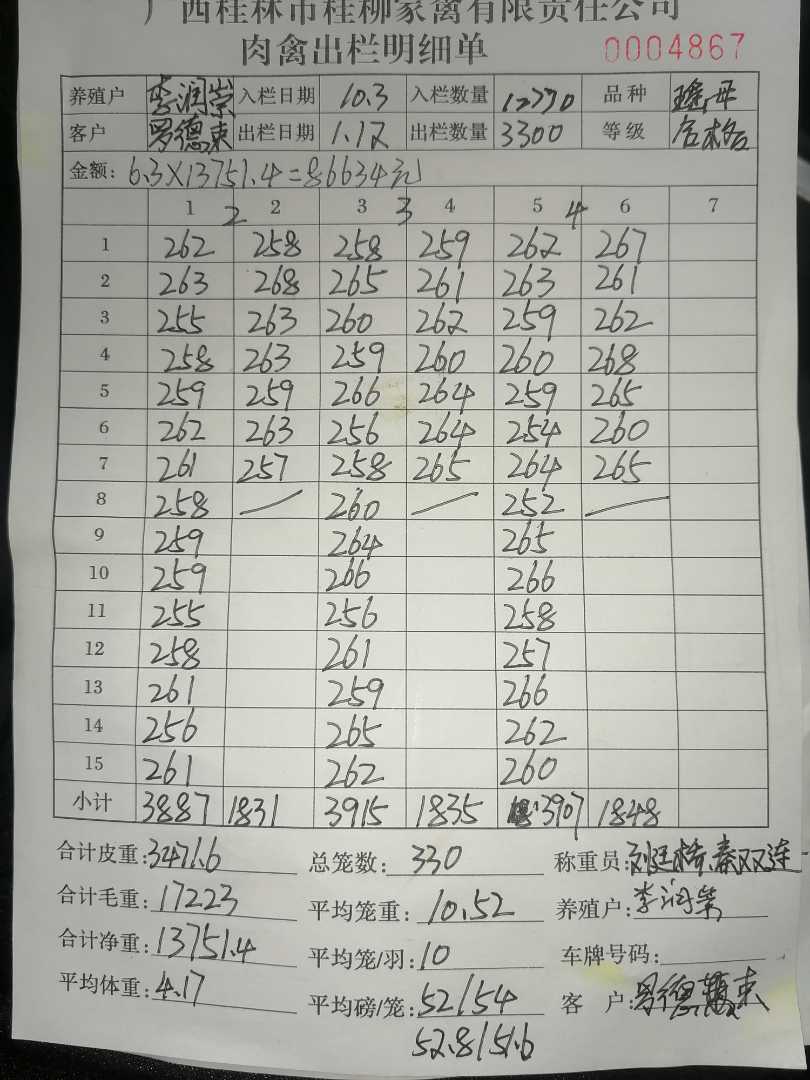 广西桂林市桂柳家禽有限责任公司
肉禽出栏明细单 0004867
养殖户 李润崇 入栏日期 10.3 入栏数量 12770 品种 瑶.丹
客户 罗德束 出栏日期 1.12 出栏数量 3300 等级 合格
金额: 6.3×13751.4=86634元
1 2 2 3 3 4 5 4 6 7
1 262 258 258 259 262 267
2 263 268 265 261 263 261
3 255 263 260 262 259 262
4 258 263 259 260 260 268
5 259 259 266 264 259 265
6 262 263 256 264 254 260
7 261 257 258 265 264 265
8 258 / 260 / 252 /
9 259 264 265
10 259 266 266
11 255 256 258
12 258 261 257
13 261 259 266
14 256 265 262
15 261 262 260
小计 3887 1831 3915 1835 3907 1848
合计皮重: 3471.6 总笼数: 330 称重员: 秦双连
合计毛重: 17223 平均笼重: 10.52 养殖户: 李润崇
合计净重: 13751.4 平均笼/羽: 10 车牌号码:
平均体重: 4.17 平均磅/笼: 52/54 客 户: 罗德束
52.8/51.6